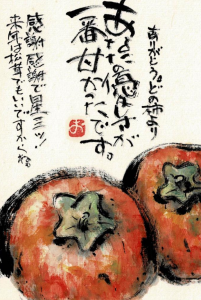 ありがとう。どの柿より
あなたの優しさが
一番甘かったです。
お
感謝感謝で星三ツ!
来年は松茸でもいいですからね